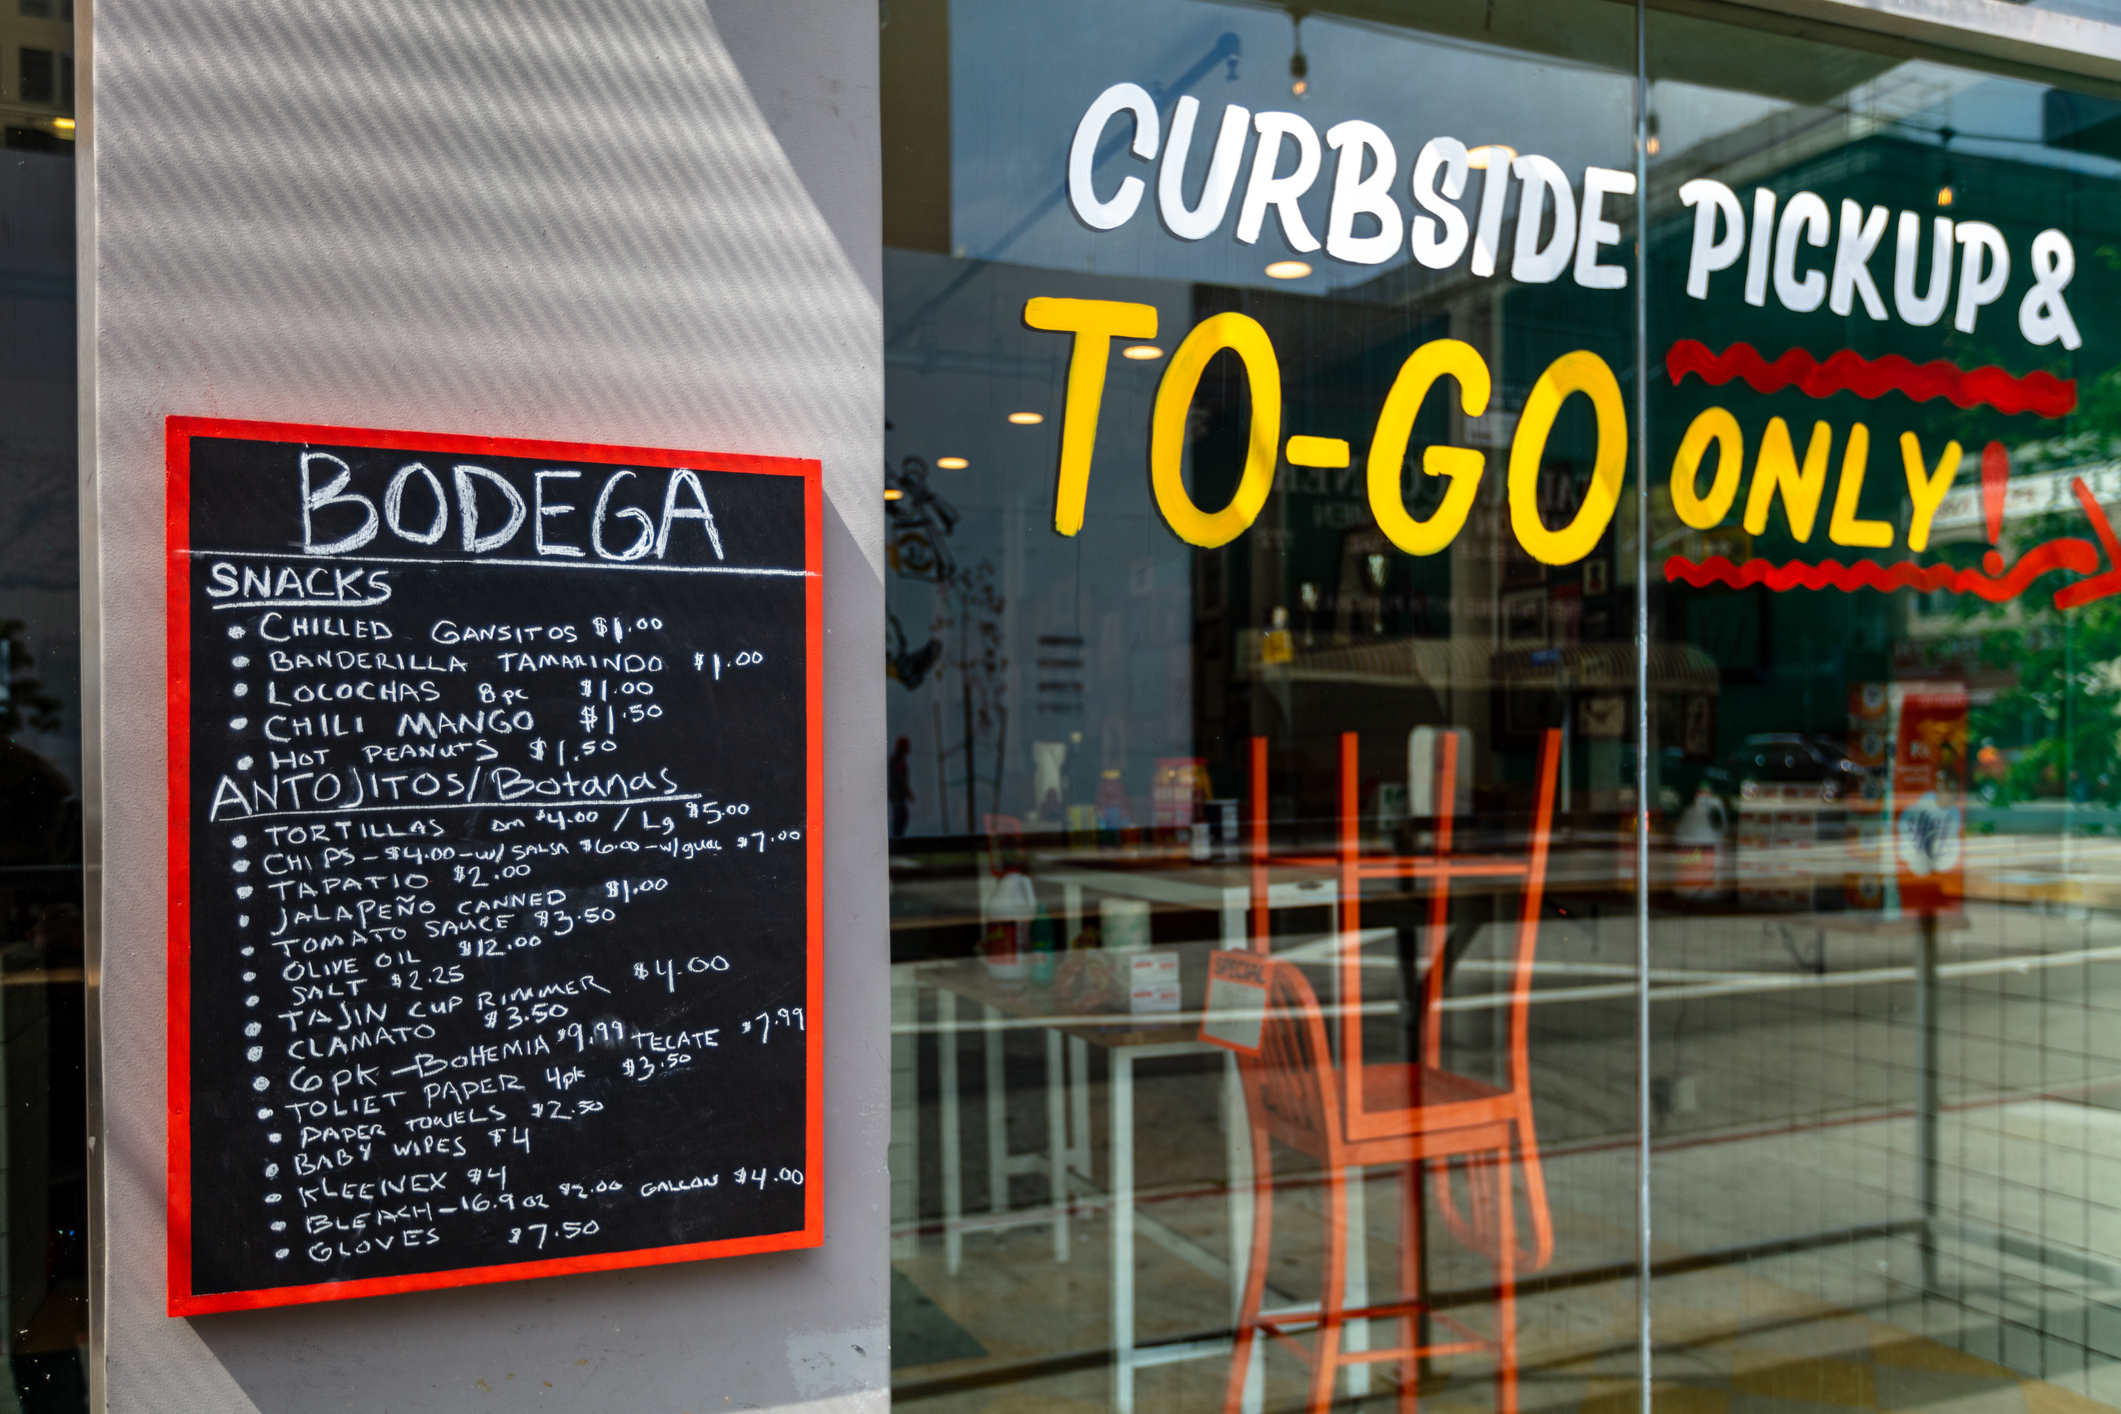 BODEGA
SNACKS
• CHILLED GANSITOS $1.00
• BANDERILLA TAMARINDO $1.00
• LOCOCHAS 8pc $1.00
• CHILI MANGO $1.50
• HOT PEANUTS $1.50
ANTOJITOS/Botanas
• TORTILLAS sm $4.00 / Lg $5.00
• CHIPS-$4.00-w/ SALSA $6.00-w/guac $7.00
• TAPATIO $2.00
• JALAPEÑO CANNED $1.00
• TOMATO SAUCE $3.50
• OLIVE OIL $12.00
• SALT $2.25
• TAJIN CUP RIMMER $4.00
• CLAMATO $3.50
• 6pk-BOHEMIA $9.99 TECATE $7.99
• TOLIET PAPER 4pk $3.50
• PAPER TOWELS $2.50
• BABY WIPES $4
• KLEENEX $4
• BLEACH-16.9 oz $2.00 GALLON $4.00
• GLOVES $7.50
CURBSIDE PICKUP &
TO-GO ONLY!
SPECIAL